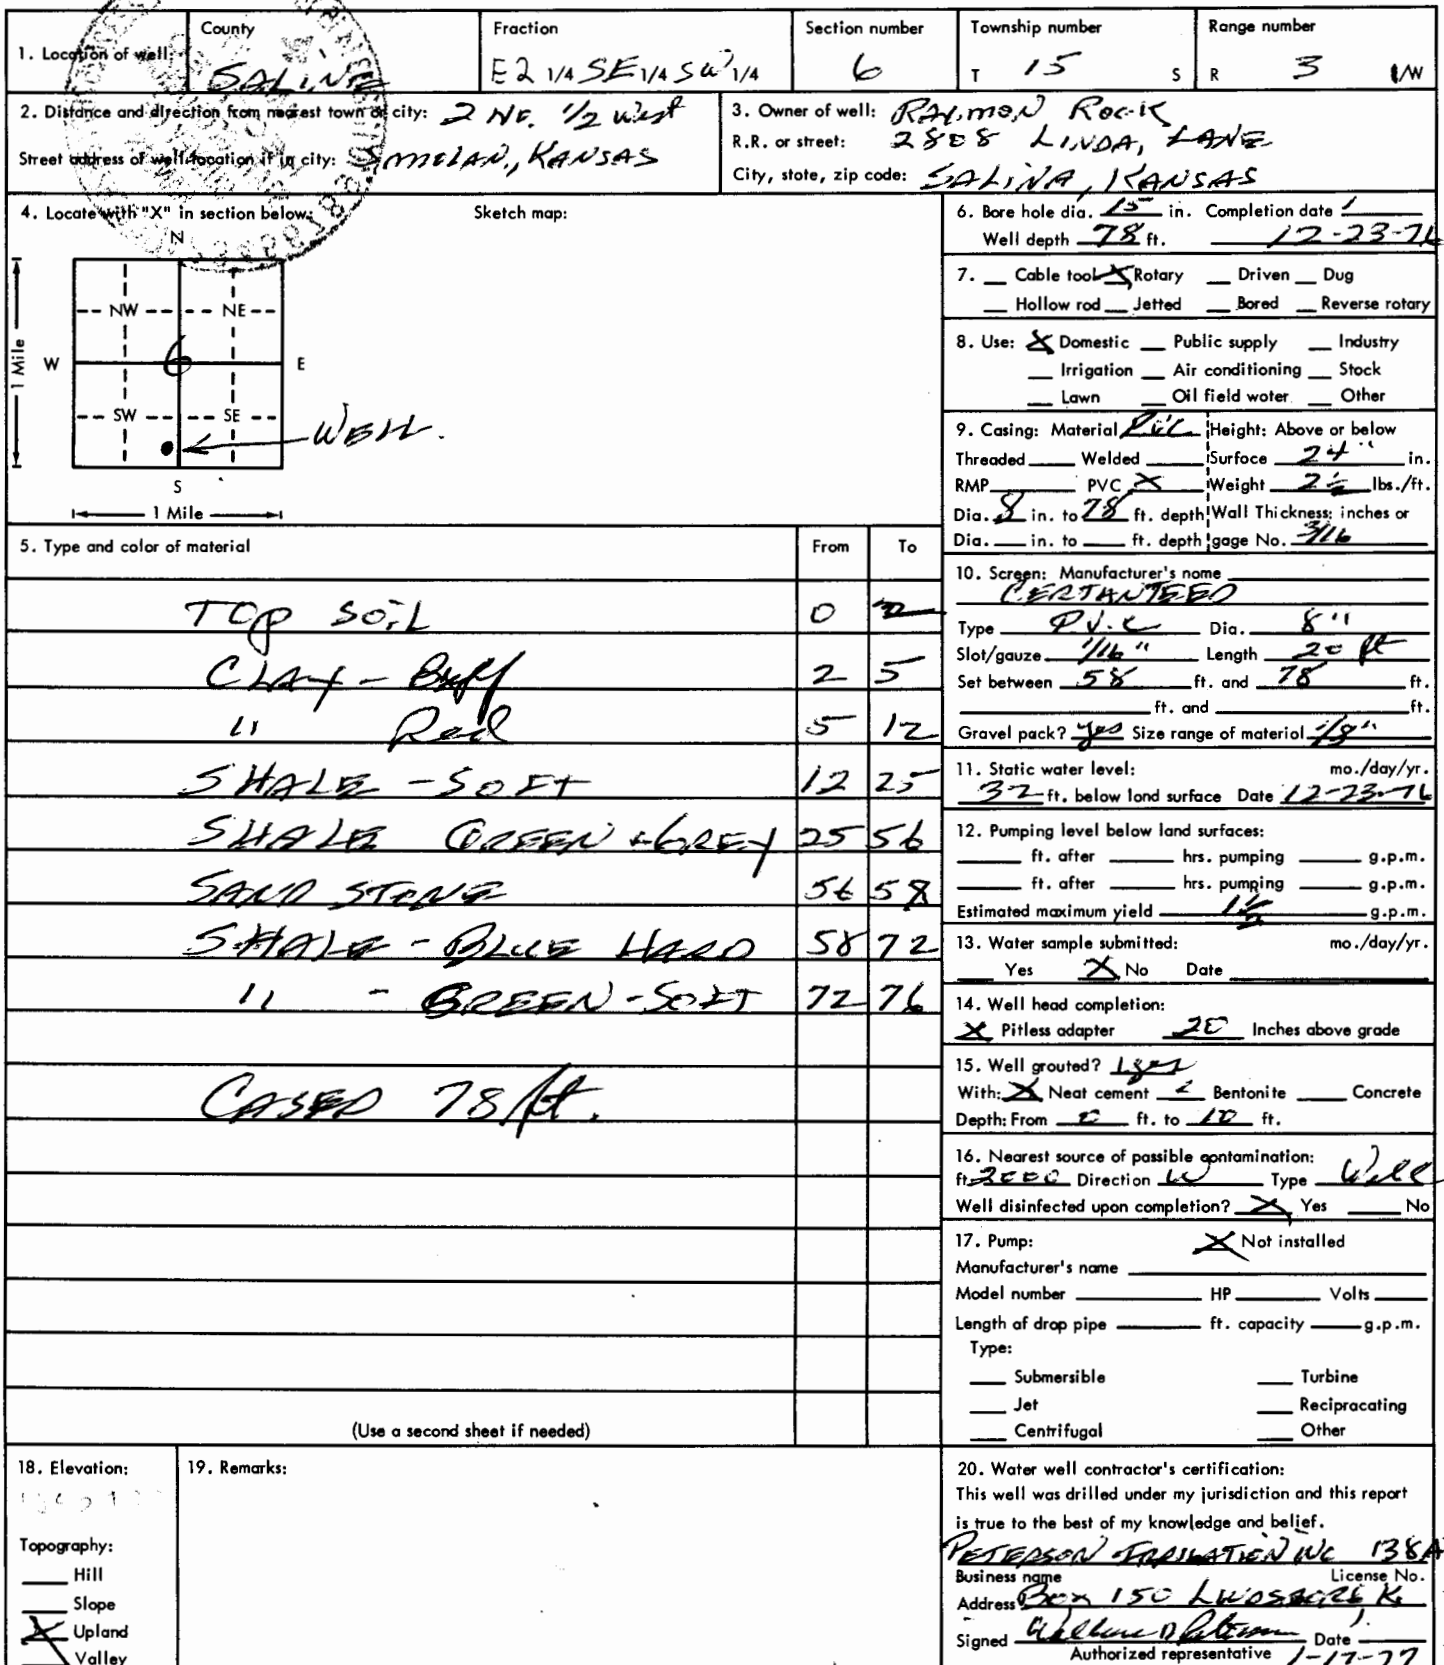 1. Location of well: County SALINE Fraction E2 1/4 SE 1/4 SW 1/4 Section number 6 Township number T 15 S Range number R 3 E/W
2. Distance and direction from nearest town or city: 2 NE. 1/2 West
Street address of well location if in city: SMOLAN, KANSAS
3. Owner of well: RAYMON ROCK
R.R. or street: 2808 LINDA, LANE
City, state, zip code: SALINA, KANSAS
4. Locate with "X" in section below: Sketch map:
N
NW NE
W 6 E
1 Mile
SW SE
WELL.
S
1 Mile
5. Type and color of material From To
TOP SOIL 0 2
CLAY - Buff 2 5
" Red 5 12
SHALE - SOFT 12 25
SHALE GREEN + GREY 25 56
SAND STONE 56 58
SHALE - BLUE HARD 58 72
" - GREEN - SOFT 72 76
CASED 78 ft.
(Use a second sheet if needed)
6. Bore hole dia. 15 in. Completion date
Well depth 78 ft. 12-23-76
7. Cable tool X Rotary Driven Dug
Hollow rod Jetted Bored Reverse rotary
8. Use: X Domestic Public supply Industry
Irrigation Air conditioning Stock
Lawn Oil field water Other
9. Casing: Material PVC Height: Above or below
Threaded Welded Surface 24" in.
RMP PVC X Weight 2 1/2 lbs./ft.
Dia. 8 in. to 78 ft. depth Wall Thickness: inches or
Dia. in. to ft. depth gage No. 3/16
10. Screen: Manufacturer's name
CERTANTEED
Type P.V.C Dia. 8"
Slot/gauze 1/16" Length 20 ft
Set between 58 ft. and 78 ft.
ft. and ft.
Gravel pack? yes Size range of material 1/8"
11. Static water level: mo./day/yr.
32 ft. below land surface Date 12-23-76
12. Pumping level below land surfaces:
ft. after hrs. pumping g.p.m.
ft. after hrs. pumping g.p.m.
Estimated maximum yield g.p.m.
13. Water sample submitted: mo./day/yr.
Yes X No Date
14. Well head completion:
X Pitless adapter 20 Inches above grade
15. Well grouted? yes
With: X Neat cement Bentonite Concrete
Depth: From 0 ft. to 10 ft.
16. Nearest source of possible contamination:
ft. 2000 Direction W Type Well
Well disinfected upon completion? X Yes No
17. Pump: X Not installed
Manufacturer's name
Model number HP Volts
Length of drop pipe ft. capacity g.p.m.
Type:
Submersible Turbine
Jet Reciprocating
Centrifugal Other
18. Elevation:
Topography:
Hill
Slope
X Upland
Valley
19. Remarks:
20. Water well contractor's certification:
This well was drilled under my jurisdiction and this report
is true to the best of my knowledge and belief.
PETERSON IRRIGATION INC 138A
Business name License No.
Address Box 150 LINDSBORG K
Signed Date
Authorized representative 1-17-77